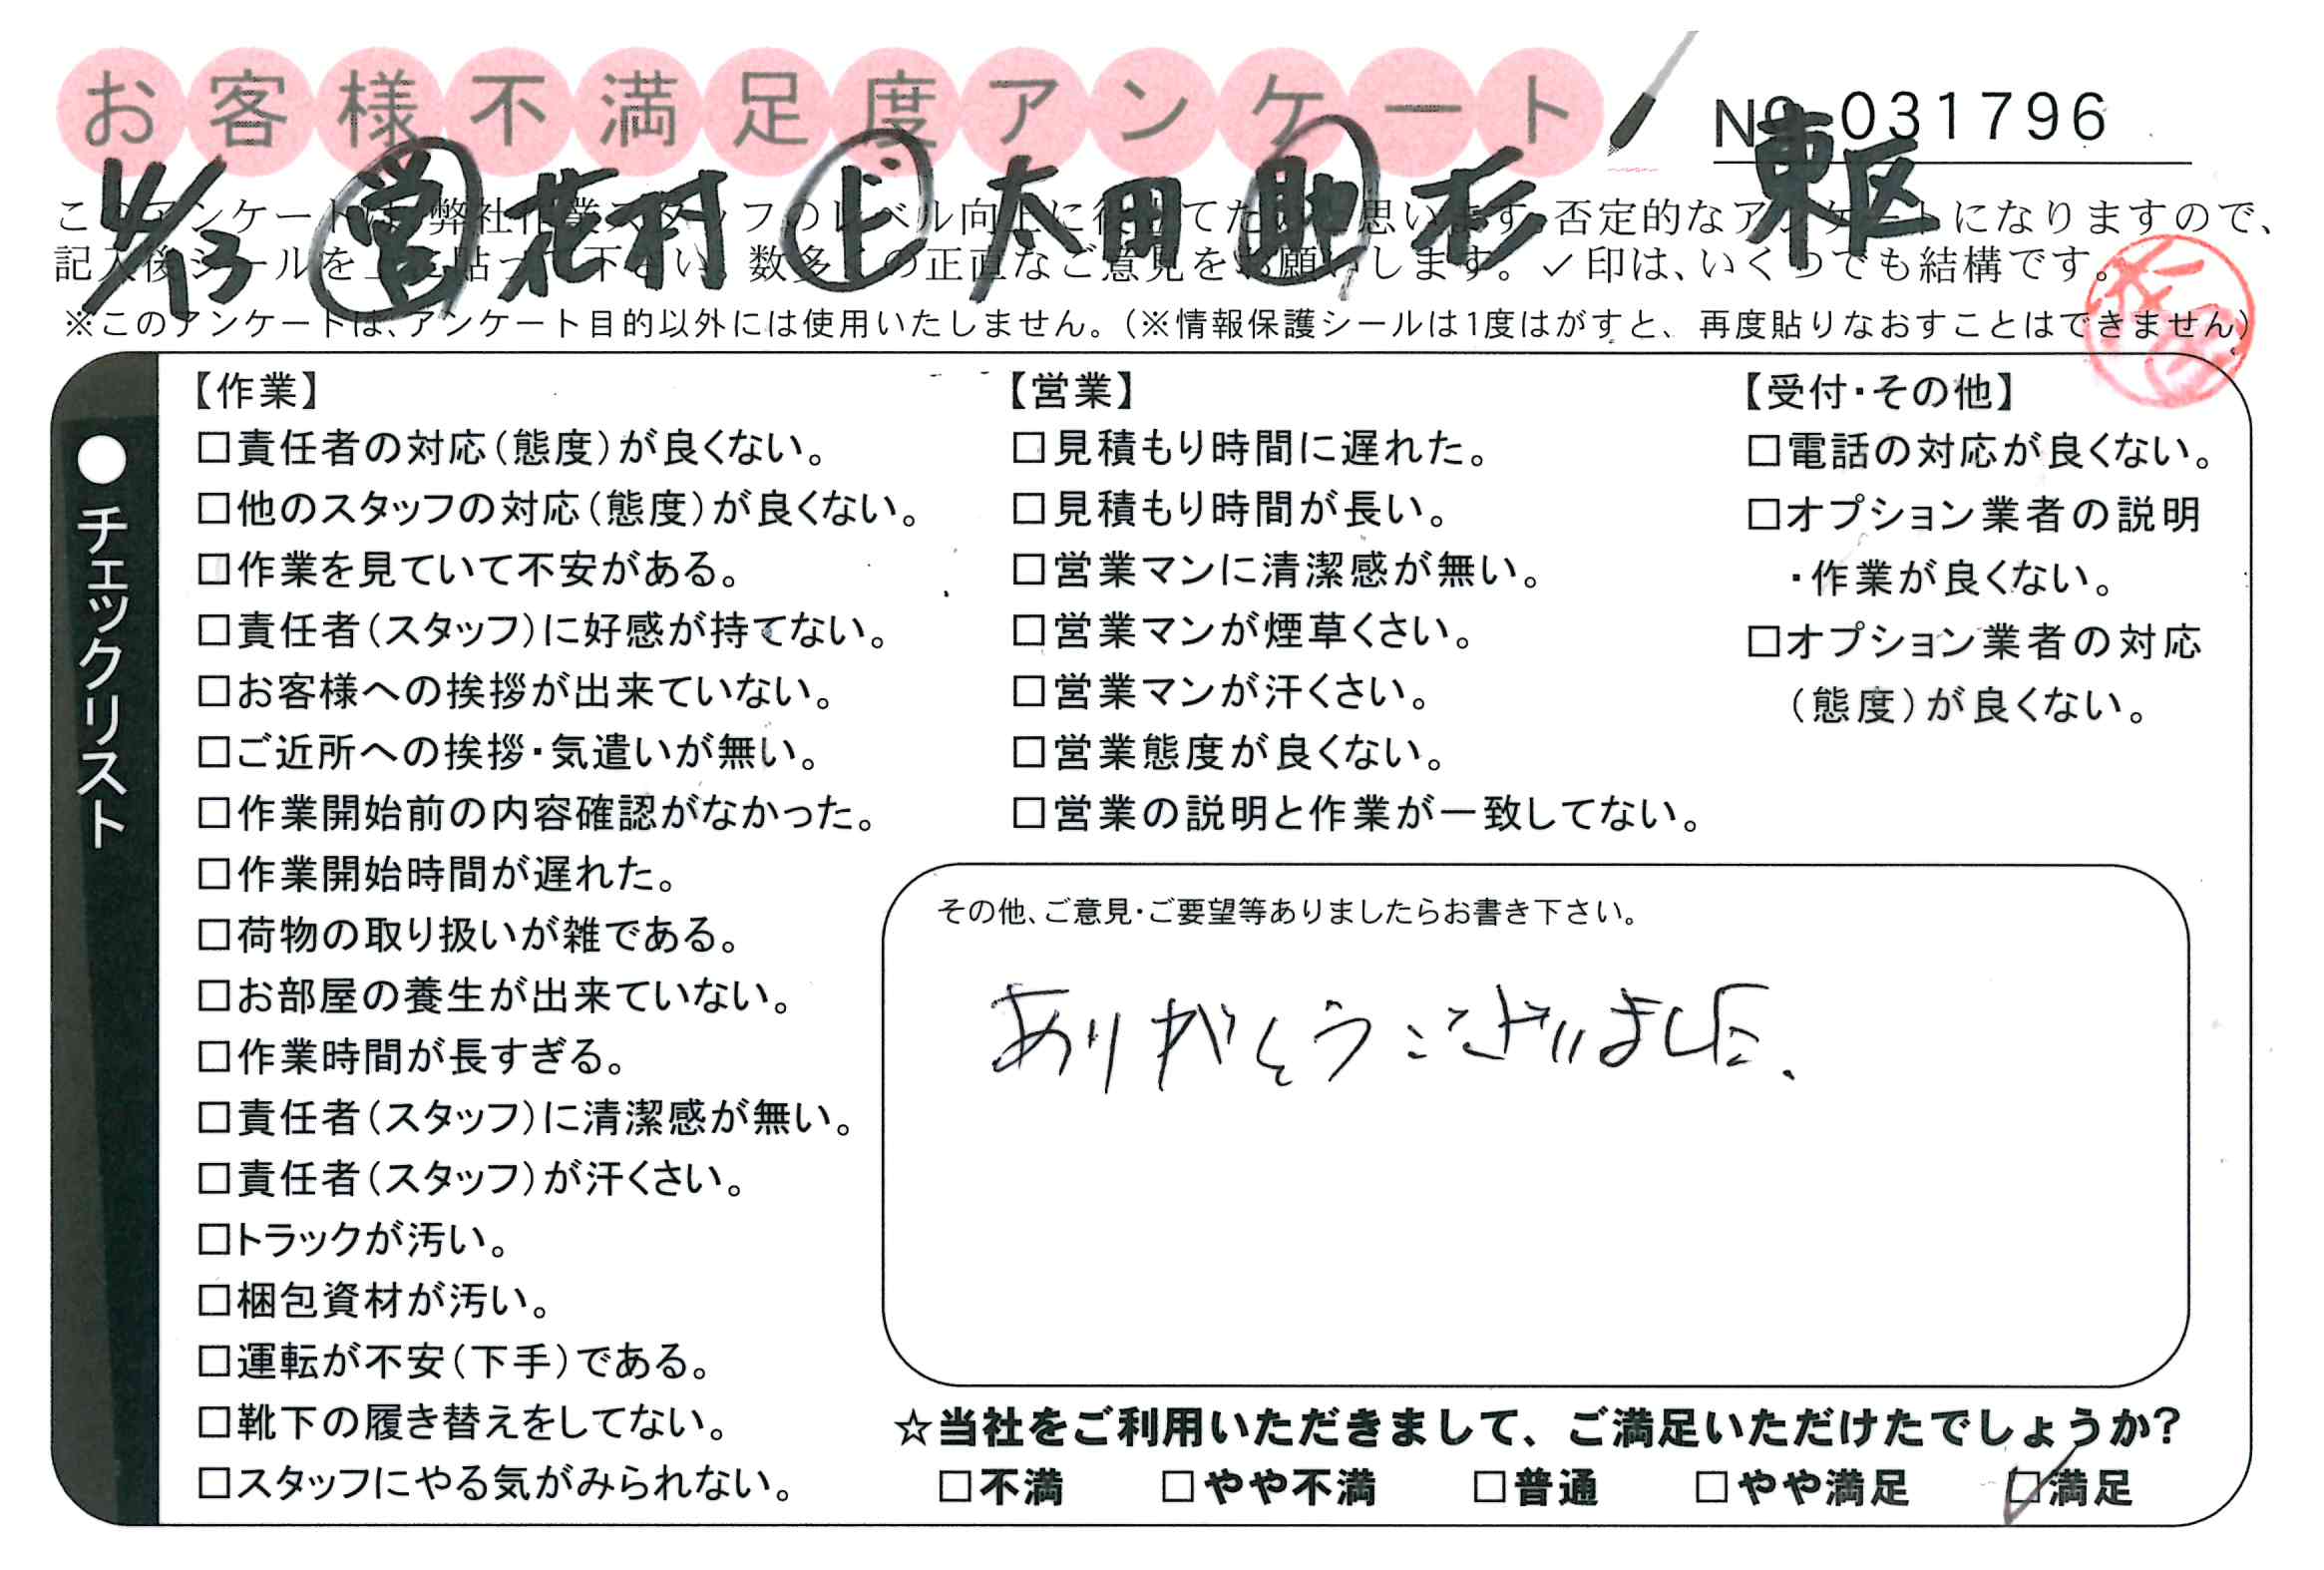 お客様不満足度アンケート
No 031796
4/13 営 花村 ド 太田 助 杉 東区
このアンケートは、弊社作業スタッフのレベル向上に役立てたいと思います。否定的なアンケートになりますので、
記入後シールを上から貼って下さい。数多くの正直なご意見をお願いします。✓印は、いくつでも結構です。
※このアンケートは、アンケート目的以外には使用いたしません。（※情報保護シールは1度はがすと、再度貼りなおすことはできません）
●チェックリスト
【作業】
□責任者の対応（態度）が良くない。
□他のスタッフの対応（態度）が良くない。
□作業を見ていて不安がある。
□責任者（スタッフ）に好感が持てない。
□お客様への挨拶が出来ていない。
□ご近所への挨拶・気遣いが無い。
□作業開始前の内容確認がなかった。
□作業開始時間が遅れた。
□荷物の取り扱いが雑である。
□お部屋の養生が出来ていない。
□作業時間が長すぎる。
□責任者（スタッフ）に清潔感が無い。
□責任者（スタッフ）が汗くさい。
□トラックが汚い。
□梱包資材が汚い。
□運転が不安（下手）である。
□靴下の履き替えをしてない。
□スタッフにやる気がみられない。
【営業】
□見積もり時間に遅れた。
□見積もり時間が長い。
□営業マンに清潔感が無い。
□営業マンが煙草くさい。
□営業マンが汗くさい。
□営業態度が良くない。
□営業の説明と作業が一致してない。
【受付・その他】
□電話の対応が良くない。
□オプション業者の説明
・作業が良くない。
□オプション業者の対応
（態度）が良くない。
その他、ご意見・ご要望等ありましたらお書き下さい。
ありがとうございました.
☆当社をご利用いただきまして、ご満足いただけたでしょうか?
□不満 □やや不満 □普通 □やや満足 ☑満足